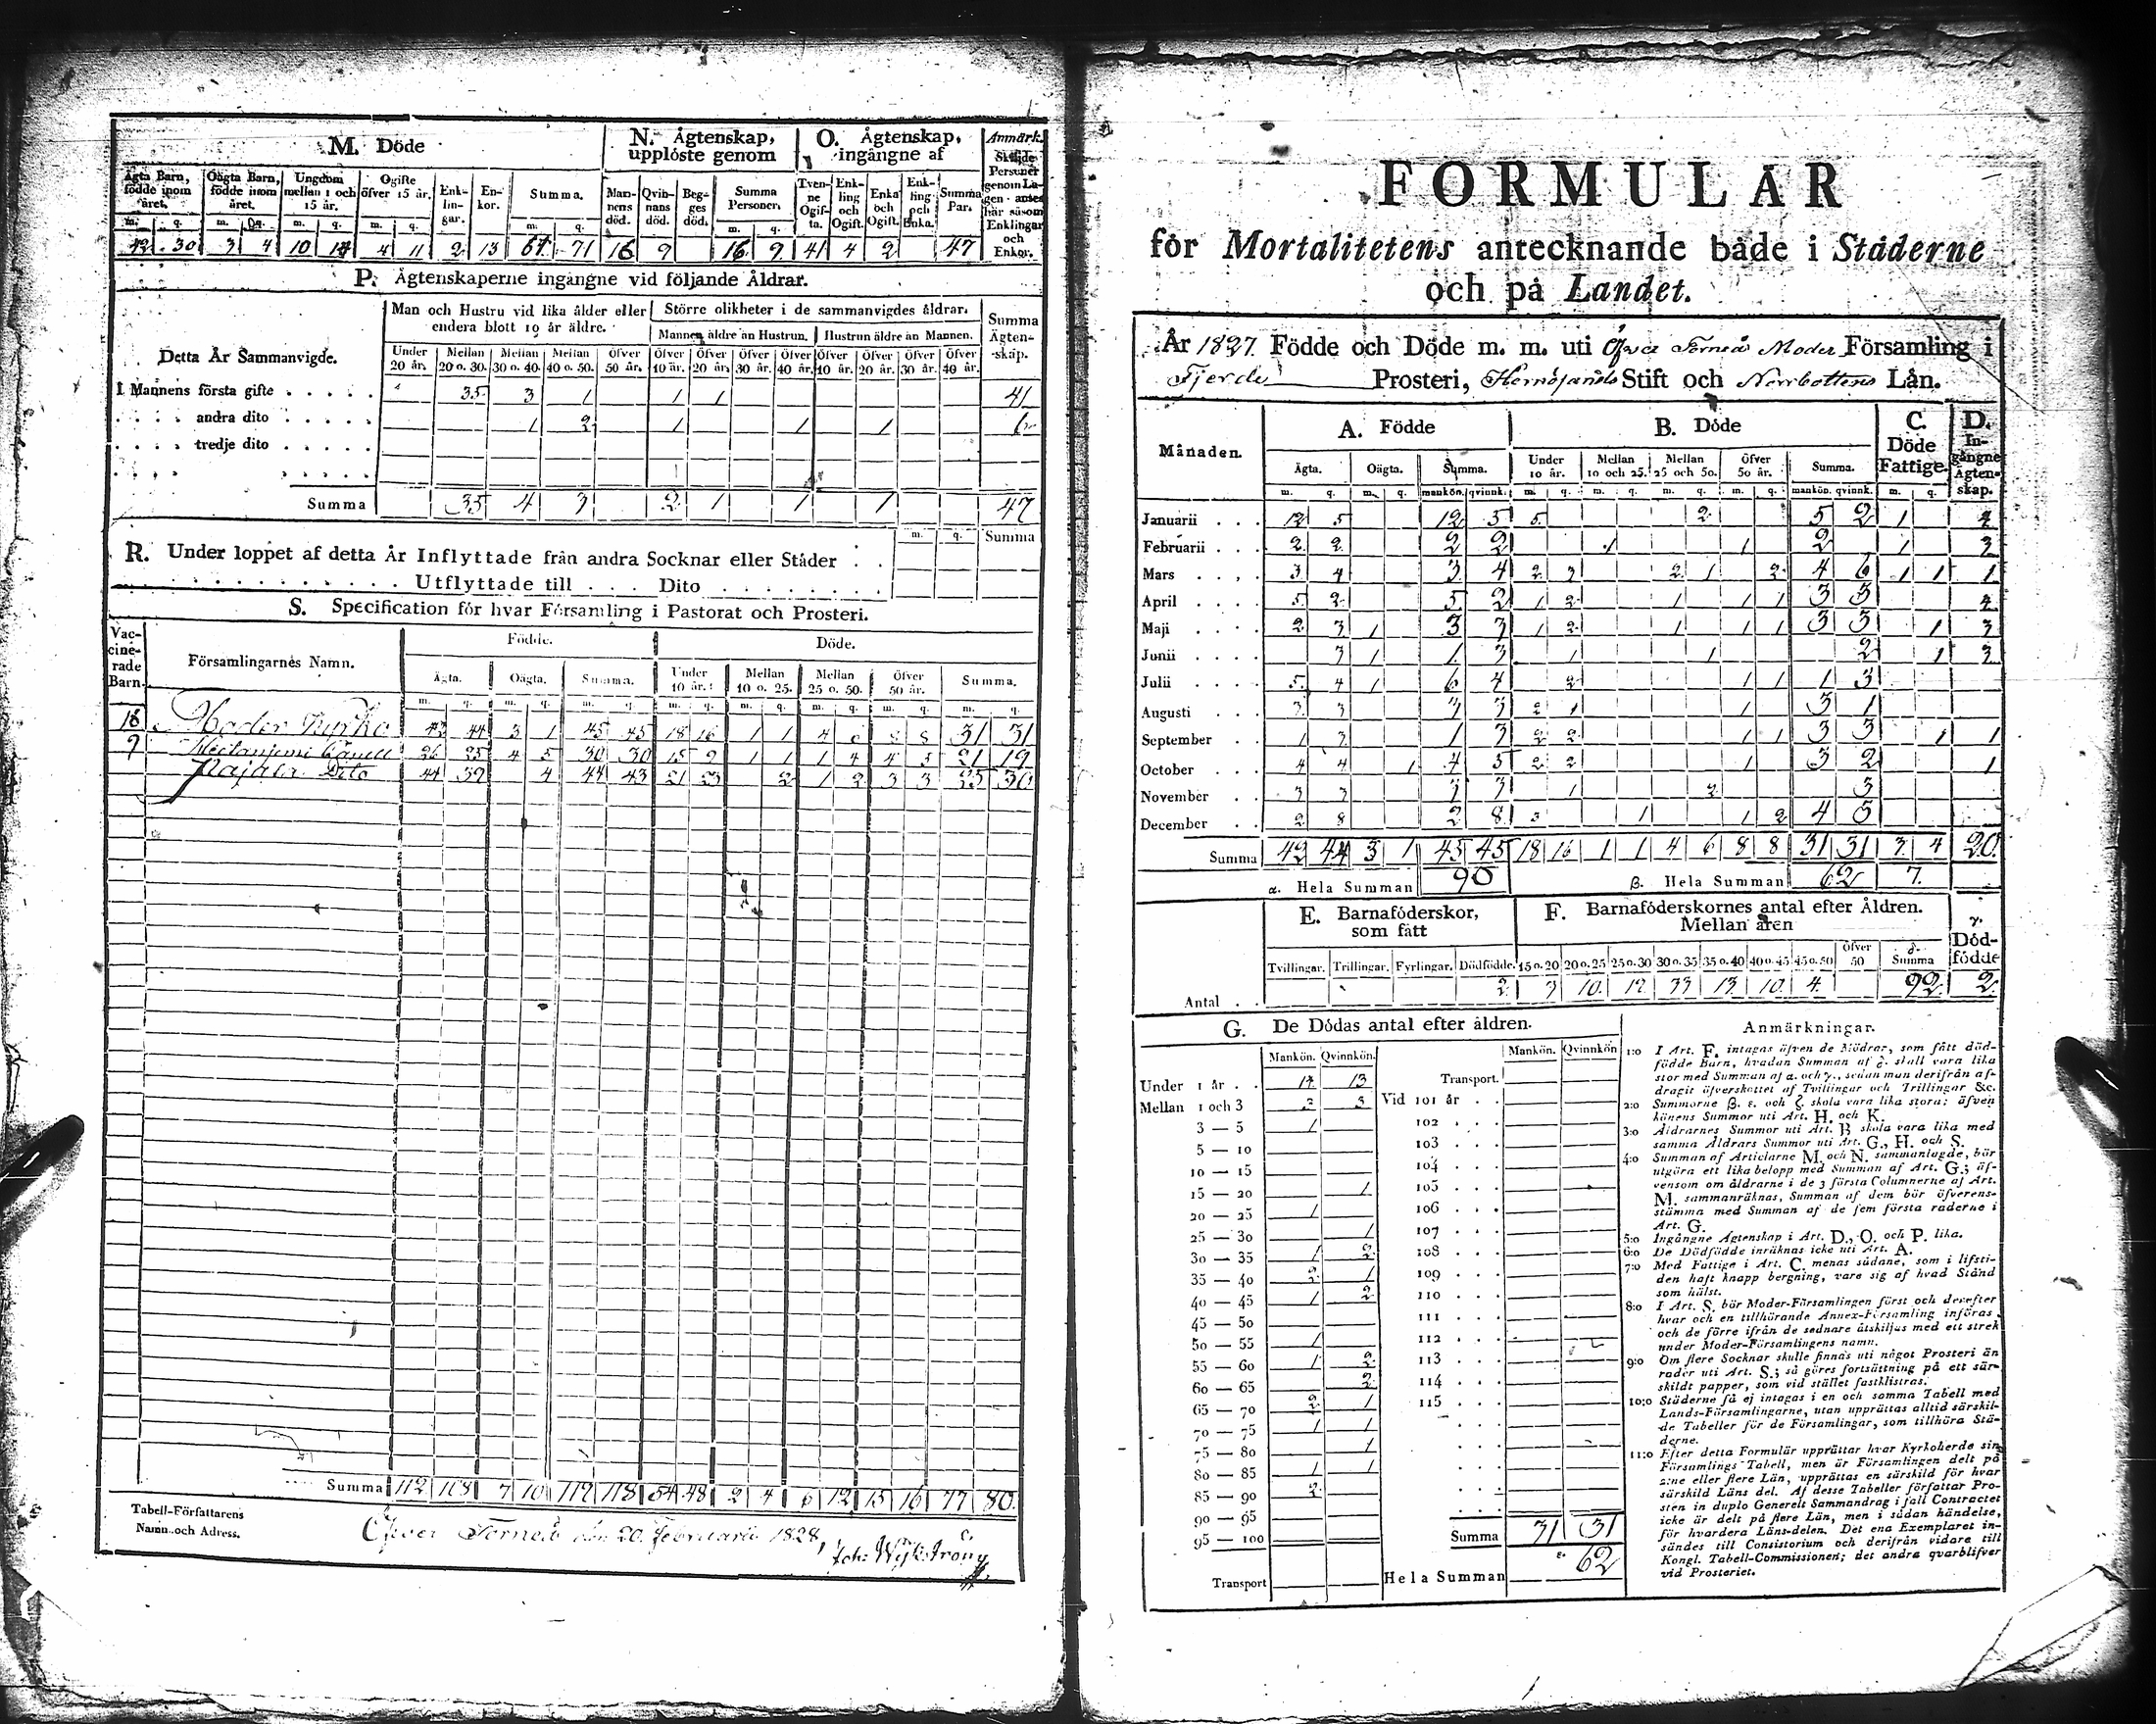 M. Döde
N. Ägtenskap, upplöste genom
O. Ägtenskap, ingångne af
Anmärk.
Ägta Barn, födde inom året.
Oägta Barn, födde inom året.
Ungdom mellan 1 och 15 år.
Ogifte öfver 15 år.
Enk-lin-gar.
En-kor.
Summa.
Man-nens död.
Qvin-nans död.
Beg-ges död.
Summa Personer.
Tven-ne Ogif-ta.
Enk-ling och Ogift.
Enka och Ogift.
Enk-ling och Enka.
Summa Par.
Skilde Personer genom La-gen antes här såsom Enklingar och Enkor.
42 30 3 4 10 4 11 2 13 71 16 9 16 9 41 4 2 47
P. Ägtenskaperne ingångne vid följande Åldrar.
Detta År Sammanvigde.
Man och Hustru vid lika ålder eller endera blott 10 år äldre.
Större olikheter i de sammanvigdes åldrar.
Summa Ägten-skap.
Mannen äldre än Hustrun.
Hustrun äldre än Mannen.
Under 20 år. Mellan 20 o. 30. Mellan 30 o. 40. Mellan 40 o. 50. Öfver 50 år. Öfver 10 år. Öfver 20 år. Öfver 30 år. Öfver 40 år. Öfver 10 år. Öfver 20 år. Öfver 30 år. Öfver 40 år.
I Mannens första gifte 35 3 1 1 1 41
andra dito 1 2 1 1 1 6
tredje dito
Summa 35 4 3 2 1 1 1 47
R. Under loppet af detta År Inflyttade från andra Socknar eller Städer
m. q. Summa
Utflyttade till . . . Dito
S. Specification för hvar Församling i Pastorat och Prosteri.
Vac-cine-rade Barn.
Församlingarnes Namn.
Födde.
Döde.
Ägta. Oägta. Summa. Under 10 år. Mellan 10 o. 25. Mellan 25 o. 50. Öfver 50 år. Summa.
18 Moder Kyrka 44 3 1 45 45 18 16 1 1 4 6 8 8 31 31
9 26 25 4 5 30 30 15 9 1 1 1 4 4 5 21 19
Pajala Dito 44 39 4 44 43 21 23 2 1 2 3 3 25 30
Summa 112 108 7 10 119 118 54 48 2 4 6 12 15 16 77 80
Tabell-Författarens Namn och Adress.
Öfver Torneå den 20. Februarii 1828,
Joh: Wijkström

FORMULÄR
för Mortalitetens antecknande både i Städerne
och på Landet.
År 1827. Födde och Döde m. m. uti Öfver Torneå Moder Församling i
Fjerde Prosteri, Hernösands Stift och Norrbottens Län.
Månaden.
A. Födde
B. Döde
C. Döde Fattige.
D. In-gångne Ägten-skap.
Ägta. Oägta. Summa. Under 10 år. Mellan 10 och 25. Mellan 25 och 50. Öfver 50 år. Summa.
m. q. m. q. mankön. qvinnk. m. q. m. q. m. q. m. q. mankön. qvinnk. m. q.
Januarii 12 5 12 5 5 2 5 2 1
Februarii 2 2 2 2 1 1 2 1 3
Mars 3 4 3 4 2 3 2 1 2 4 6 1 1 1
April 5 2 5 2 1 2 1 1 1 3 3
Maji 2 3 1 3 3 1 2 1 1 1 3 3 1 3
Junii 3 1 1 3 1 1 2 1 3
Julii 5 4 1 6 4 2 1 1 1 3
Augusti 3 3 3 3 2 1 1 3 1
September 1 3 1 3 2 2 1 1 3 3 1 1
October 4 4 1 4 5 2 2 1 3 2 1
November 3 3 3 3 1 2 3
December 2 8 2 8 3 1 1 2 4 5
Summa 42 44 3 1 45 45 18 16 1 1 4 6 8 8 31 31 3 4 20
α. Hela Summan 90
β. Hela Summan 62 7.
E. Barnaföderskor, som fått
F. Barnaföderskornes antal efter Åldren. Mellan åren
γ. Död-födde
Tvillingar. Trillingar. Fyrlingar. Dödfödde. 15 o. 20 20 o. 25 25 o. 30 30 o. 35 35 o. 40 40 o. 45 45 o. 50 Öfver 50 δ. Summa
Antal 2 3 10. 33 13 10. 4. 92. 2
G. De Dödas antal efter åldren.
Mankön. Qvinnkön. Mankön. Qvinnkön
Under 1 år 13 Transport.
Mellan 1 och 3 3 3 Vid 101 år
3 — 5 1 102
5 — 10 103
10 — 15 104
15 — 20 1 105
20 — 25 1 106
25 — 30 1 107
30 — 35 1 2 108
35 — 40 2 1 109
40 — 45 1 2 110
45 — 50 111
50 — 55 1 112
55 — 60 1 2 113
60 — 65 2 114
65 — 70 2 1 115
70 — 75 1 1
75 — 80 1
80 — 85 1 1
85 — 90 2
90 — 95
95 — 100 Summa 31 31
Transport Hela Summan ε. 62
Anmärkningar.
1:o I Art. F. intagas äfven de Mödrar, som fått död-
födde Barn, hvadan Summan af δ. skall vara lika
stor med Summan af α. och γ., sedan man derifrån af-
dragit öfverskottet af Tvillingar och Trillingar &c.
2:o Summorne β. ε. och ζ. skola vara lika stora: äfven
könens Summor uti Art. H. och K.
3:o Åldrarnes Summor uti Art. B skola vara lika med
samma Åldrars Summor uti Art. G., H. och S.
4:o Summan af Articlarne M. och N. sammanlagde, bör
utgöra ett lika belopp med Summan af Art. G.; äf-
vensom om åldrarne i de 3 första Columnerne af Art.
M. sammanräknas, Summan af dem bör öfverens-
stämma med Summan af de fem första raderne i
Art. G.
5:o Ingångne Ägtenskap i Art. D., O. och P. lika.
6:o De Dödfödde inräknas icke uti Art. A.
7:o Med Fattige i Art. C. menas sådane, som i lifsti-
den haft knapp bergning, vare sig af hvad Stånd
som hälst.
8:o I Art. S. bör Moder-Församlingen först och derefter
hvar och en tillhörande Annex-Församling införas,
och de förre ifrån de sednare åtskiljas med ett strek
under Moder-Församlingens namn.
9:o Om flere Socknar skulle finnas uti något Prosteri än
rader uti Art. S.; så göres fortsättning på ett sär-
skildt papper, som vid stället fastklistras.
10:o Städerne få ej intagas i en och samma Tabell med
Lands-Församlingarne, utan upprättas alltid särskil-
de Tabeller för de Församlingar, som tillhöra Stä-
derne.
11:o Efter detta Formulär upprättar hvar Kyrkoherde sin
Församlings Tabell, men är Församlingen delt på
2:ne eller flere Län, upprättas en särskild för hvar
särskild Läns del. Af desse Tabeller författar Pro-
sten in duplo Generelt Sammandrag i fall Contractet
icke är delt på flere Län, men i sådan händelse,
för hvardera Läns-delen. Det ena Exemplaret in-
sändes till Consistorium och derifrån vidare till
Kongl. Tabell-Commissionen; det andra qvarblifver
vid Prosteriet.